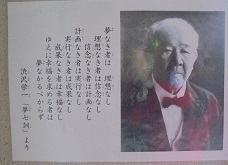 夢なき者は 理想なし
理想なき者は信念なし
信念なき者は計画なし
計画なき者は実行なし
実行なき者は成果なし
成果なき者は幸福なし
ゆえに幸福を求める者は
夢なかるべからず
渋沢栄一「夢七訓」より